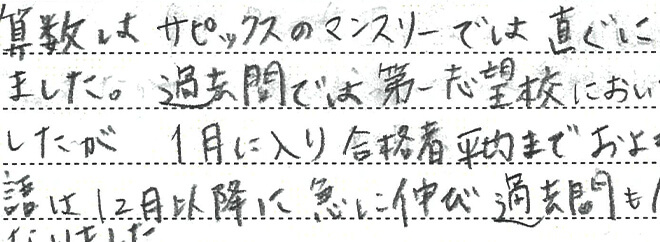 算数はサピックスのマンスリーでは直ぐに
ました。過去問では第一志望校におい
したが 1月に入り合格者平均まで およ
語は12月以降に急に伸び過去問も